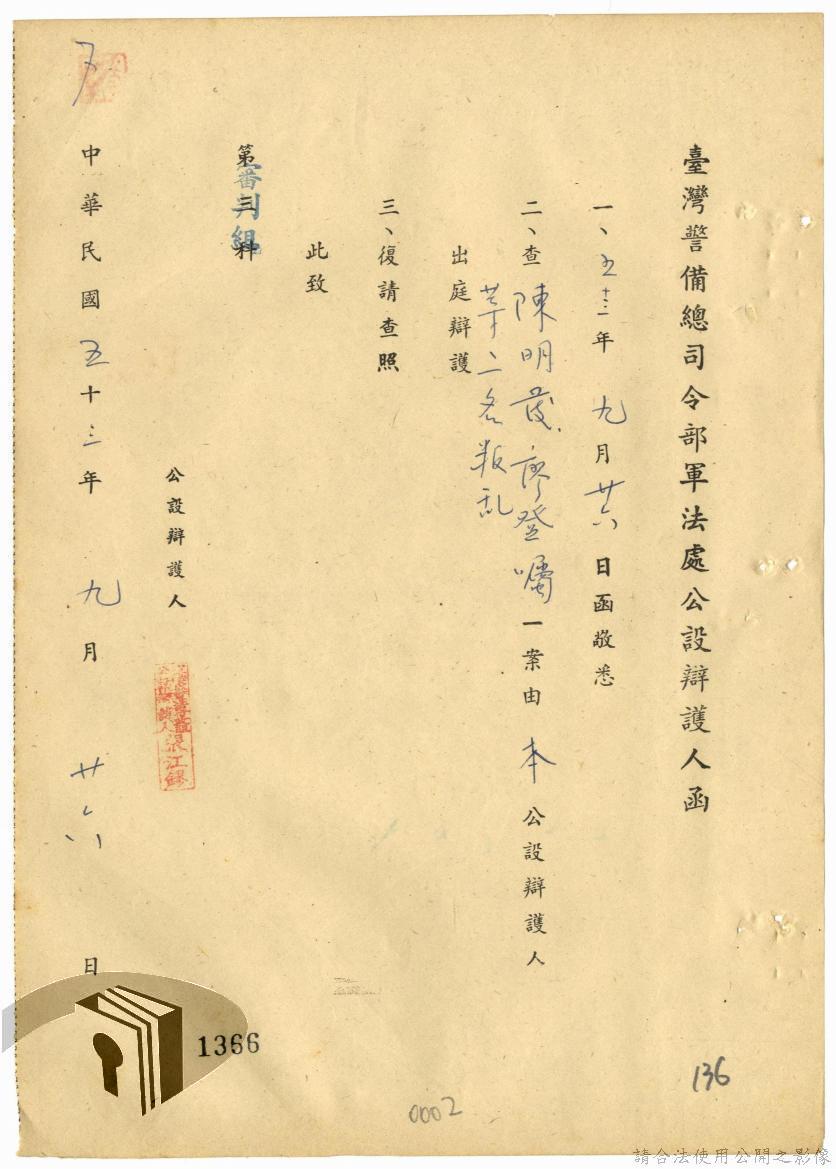 臺灣警備總司令部軍法處公設辯護人函
一、五十三年九月廿六日函敬悉
二、查陳明發廖登囑
等十二名叛乱
一案由本公設辯護人
出庭辯護
三、復請查照
此致
第三科
審判組
公設辯護人
張江鏐
中華民國五十三年九月廿六日
1366
136
0002
請合法使用公開之影像